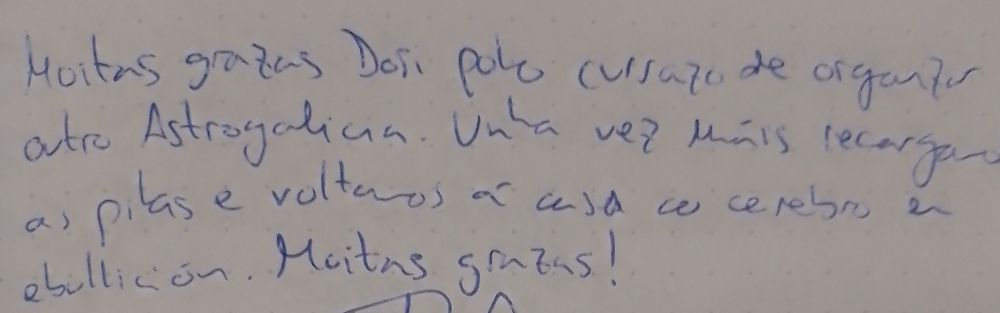 Moitas grazas Dosi polo cursazo de organizar
outro Astrogalicia. Unha vez máis recargamos
as pilas e voltamos á casa co cerebro en
ebullición. Moitas grazas!